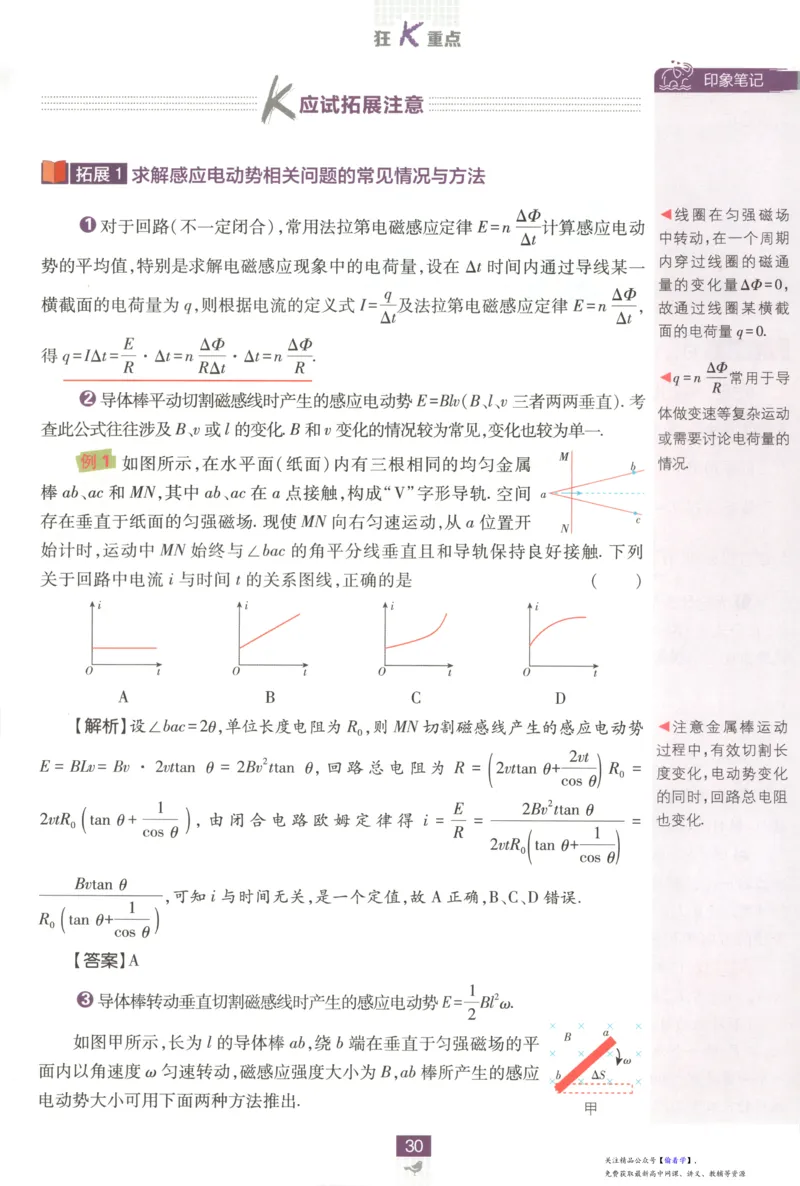 狂K重点
K应试拓展注意
印象笔记
拓展1 求解感应电动势相关问题的常见情况与方法
❶对于回路(不一定闭合),常用法拉第电磁感应定律 E=n ΔΦ/Δt 计算感应电动
势的平均值,特别是求解电磁感应现象中的电荷量,设在 Δt 时间内通过导线某一
横截面的电荷量为 q,则根据电流的定义式 I= q/Δt 及法拉第电磁感应定律 E=n ΔΦ/Δt,
得 q=IΔt= E/R · Δt=n ΔΦ/RΔt · Δt=n ΔΦ/R.
❷导体棒平动切割磁感线时产生的感应电动势 E=Blv(B、l、v 三者两两垂直). 考
查此公式往往涉及 B、v 或 l 的变化. B 和 v 变化的情况较为常见,变化也较为单一.
例1 如图所示,在水平面(纸面)内有三根相同的均匀金属
棒 ab、ac 和 MN,其中 ab、ac 在 a 点接触,构成“V”字形导轨. 空间
存在垂直于纸面的匀强磁场. 现使 MN 向右匀速运动,从 a 位置开
始计时,运动中 MN 始终与∠bac 的角平分线垂直且和导轨保持良好接触. 下列
关于回路中电流 i 与时间 t 的关系图线,正确的是 ( )
M
b
a
c
N
i i i i
O t O t O t O t
A B C D
【解析】设∠bac=2θ,单位长度电阻为 R₀,则 MN 切割磁感线产生的感应电动势
E = BLv = Bv · 2vttan θ = 2Bv²ttan θ, 回路总电阻为 R = (2vttan θ+ 2vt/cos θ) R₀ =
2vtR₀ (tan θ+ 1/cos θ), 由闭合电路欧姆定律得 i = E/R = 2Bv²ttan θ/2vtR₀(tan θ+ 1/cos θ) =
Bvtan θ/R₀(tan θ+ 1/cos θ),可知 i 与时间无关,是一个定值,故 A 正确,B、C、D 错误.
【答案】A
❸导体棒转动垂直切割磁感线时产生的感应电动势 E= 1/2 Bl²ω.
如图甲所示,长为 l 的导体棒 ab,绕 b 端在垂直于匀强磁场的平
面内以角速度 ω 匀速转动,磁感应强度大小为 B,ab 棒所产生的感应
电动势大小可用下面两种方法推出.
B a
ω
b ΔS
甲
◀线圈在匀强磁场
中转动,在一个周期
内穿过线圈的磁通
量的变化量ΔΦ=0,
故通过线圈某横截
面的电荷量 q=0.
◀q=n ΔΦ/R 常用于导
体做变速等复杂运动
或需要讨论电荷量的
情况.
◀注意金属棒运动
过程中,有效切割长
度变化,电动势变化
的同时,回路总电阻
也变化.
30
关注精品公众号【偷着学】,
免费获取最新高中网课、讲义、教辅等资源